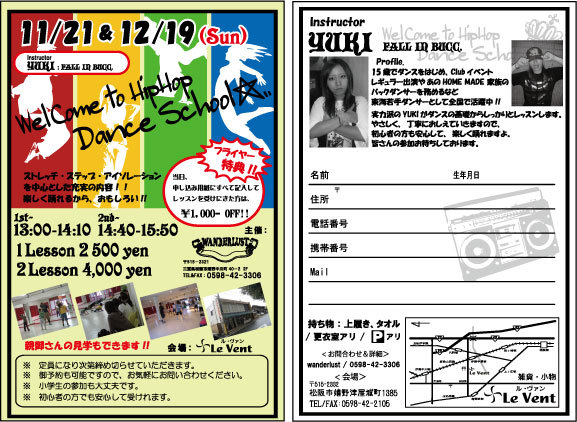 11/21 & 12/19 (Sun)
Instructor
YUKI : FALL IN BUCC.
WelCome to HipHop
Dance School☆..
フライヤー
特典!!
当日、
申し込み用紙にすべて記入して
レッスンを受けにきた方は、
¥1,000- OFF!!
ストレッチ・ステップ・アイソレーション
を中心とした充実の内容!!
楽しく踊れるから、おもしろい!!
1st~ 2nd~
13:00-14:10 14:40-15:50
1 Lesson 2500 yen
2 Lesson 4,000 yen
主催:
WANDERLUST
〒515-2321
TEL&FAX:0598-42-3306
親御さんの見学もできます!!
会場:
ル・ヴァン
Le Vent
※ 定員になり次第締め切らせていただきます。
※ 御予約も可能ですので、お気軽にお問い合わせください。
※ 小学生の参加も大丈夫です。
※ 初心者の方でも安心して受けれます。
Instructor
YUKI
FALL IN BUCC.
WelCome to HipHop
Dance School
Profile.
15歳でダンスをはじめ、Clubイベント
レギュラー出演やあのHOME MADE 家族の
バックダンサーを務めるなど
東海若手ダンサーとして全国で活躍中!!
実力派のYUKIがダンスの基礎からしっかりとレッスンします。
やさしく、丁寧におしえていきますので、
初心者の方も安心して、楽しく踊れますよ。
皆さんの参加お待ちしております。
名前 生年月日
〒
住所
電話番号
携帯番号
Mail
持ち物:上履き、タオル
/ 更衣室アリ / P アリ
<お問合わせ&詳細>
wanderlust / 0598-42-3306
<会場>
〒515-2322
松阪市嬉野津屋城町1385
TEL/FAX:0598-42-2105
雑貨・小物
ル・ヴァン
Le Vent